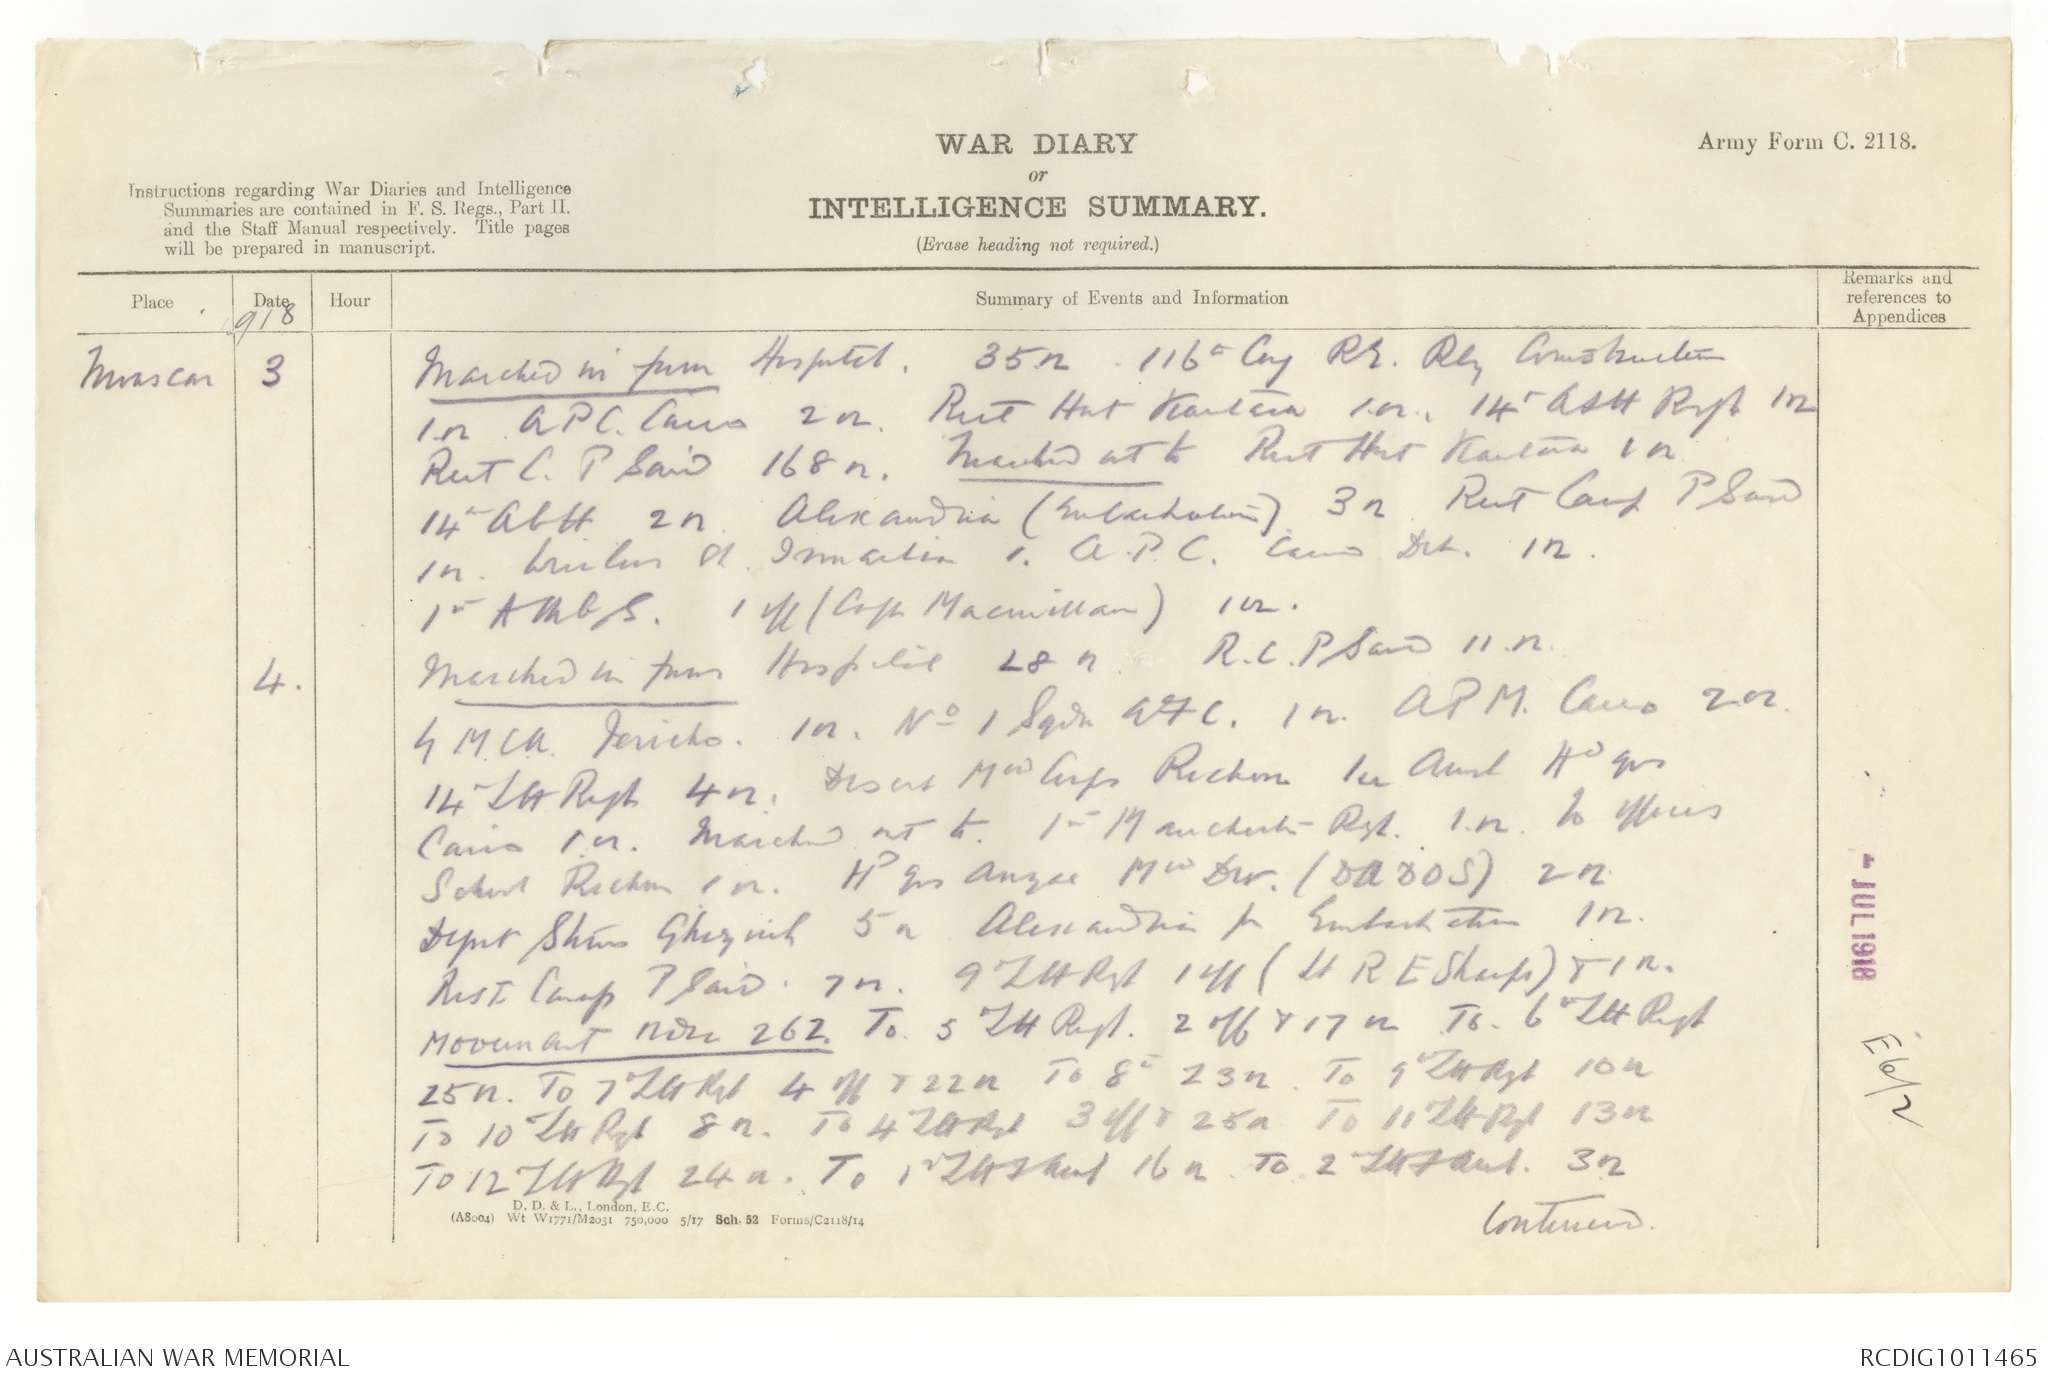 WAR DIARY
or
INTELLIGENCE SUMMARY.
(Erase heading not required.)
Army Form C. 2118.
Instructions regarding War Diaries and Intelligence
Summaries are contained in F. S. Regs., Part II.
and the Staff Manual respectively. Title pages
will be prepared in manuscript.
Place
Date
1918
Hour
Summary of Events and Information
Remarks and
references to
Appendices
Moascar 3 Marched in from Hospital. 35 or. 116th Coy R.E. Rly Construction
1 or. A P C. Cairo 2 or. Rest Hut Kantara 1 or. 14th ALH Regt 1 or
Rest C. P Said 168 or. Marched out to Rest Hut Kantara 1 or
14th ALH 2 or. Alexandria (Embarkation) 3 or Rest Camp P Said
1 or. Ismailia 1. A.P.C. Cairo Det. 1 or.
1st A M G S. 1 off (Capt Macmillan) 1 or.
4. Marched in from Hospital 28 or R.C. P Said 11 or.
Y M.C.A. Jericho. 1 or. No 1 Sqdn A F C. 1 or. A P M. Cairo 2 or.
14th LH Regt 4 or. Desert Mtd Corps Richon 1 or Aust Hd qrs
Cairo 1 or. Marched out to. 1st Manchester Regt. 1 or. To Officers
School Richon 1 or. Hd qrs Anzac Mtd Div. (DADOS) 2 or
Depot Stores Ghezireh 5 or Alexandria for Embarkation 1 or.
Rest Camp P Said. 7 or. 9th LH Regt 1 off (Lt R E Sharpe) & 1 or.
Movement order 262. To. 5th LH Regt. 2 off & 17 or To. 6th LH Regt
25 or. To 7th LH Regt 4 off & 22 or To 8th 23 or. To 9th LH Regt 10 or
To 10th LH Regt 8 or. To 4th LH Regt 3 off & 25 or To 11th LH Regt 13 or
To 12th LH Regt 24 or. To 1st LH F Amb 16 or. To 2nd LH F Amb. 3 or
Continued.
4 JUL 1918
E6/2
D. D. & L., London, E.C.
(A8004) Wt W1771/M2031 750,000 5/17 Sch. 52 Forms/C2118/14
AUSTRALIAN WAR MEMORIAL
RCDIG1011465